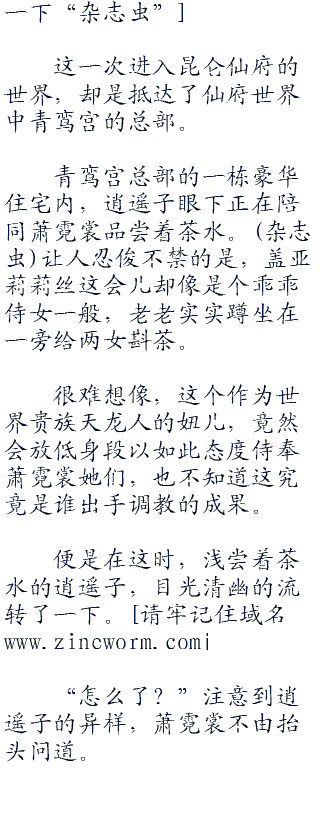 一下“杂志虫”]
这一次进入昆仑仙府的
世界，却是抵达了仙府世界
中青鸾宫的总部。
青鸾宫总部的一栋豪华
住宅内，逍遥子眼下正在陪
同萧霓裳品尝着茶水。(杂志
虫)让人忍俊不禁的是，盖亚
莉莉丝这会儿却像是个乖乖
侍女一般，老老实实蹲坐在
一旁给两女斟茶。
很难想像，这个作为世
界贵族天龙人的妞儿，竟然
会放低身段以如此态度侍奉
萧霓裳她们，也不知道这究
竟是谁出手调教的成果。
便是在这时，浅尝着茶
水的逍遥子，目光清幽的流
转了一下。[请牢记住域名
www.zincworm.com|
“怎么了？”注意到逍
遥子的异样，萧霓裳不由抬
头问道。